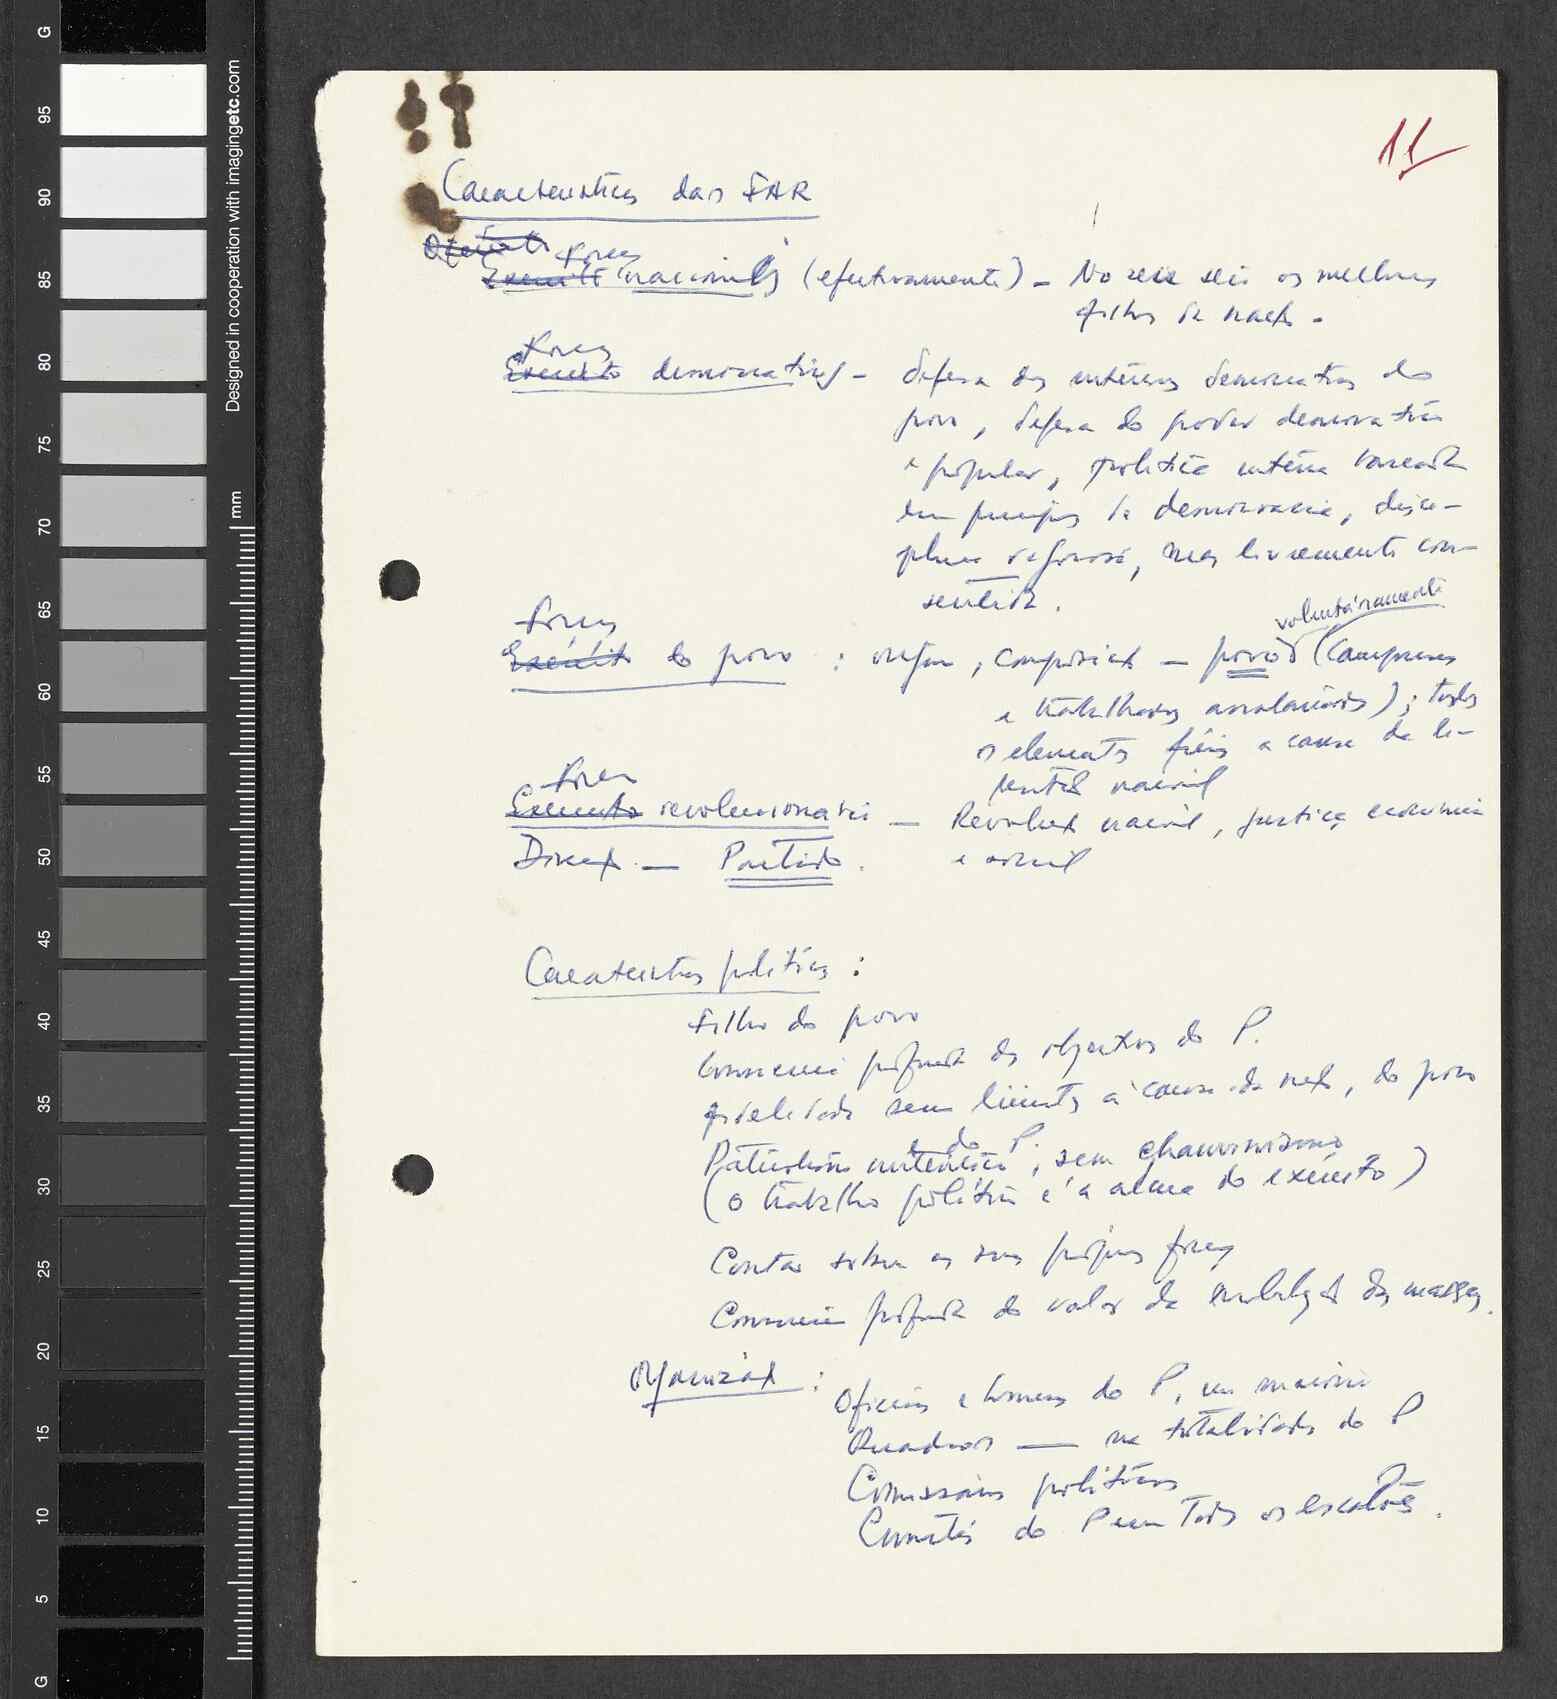 11
Características das FAR
Forças nacionais (efectivamente) – No seu seio os melhores
filhos da nação.
Forças democráticas – defesa dos interesses democráticos do
povo, defesa do poder democrático
e popular, política interna baseada
em princípios de democracia, disci-
plina rigorosa, mas livremente con-
sentida.
voluntáriamente
Forças do povo : origem, composição – povo (camponeses
e trabalhadores assalariados); todos
os elementos fiéis a causa da li-
bertação nacional
Forças revolucionarias – Revolução nacional, justiça económica
e social
Direcção – Partido.
Caracteristicas politicas :
Filho do povo
Consciencia profunda dos objectivos do P.
fidelidade sem limites à causa da nação, do povo
e do P.
Patriotismo autêntico, sem chauvinismo
(o trabalho político é a alma do exército)
Contar sobre as suas próprias forças
Consciencia profunda do valor da mobilização das massas.
Organização :
Oficiais e homens do P. em maioria
Quadros — na totalidade do P
Comissários políticos
Comités do P em todos os escalões.
G
95
90
85
80
75
70
65
60
55
50
45
40
35
30
25
20
15
10
5
G
mm
Designed in cooperation with imagingetc.com